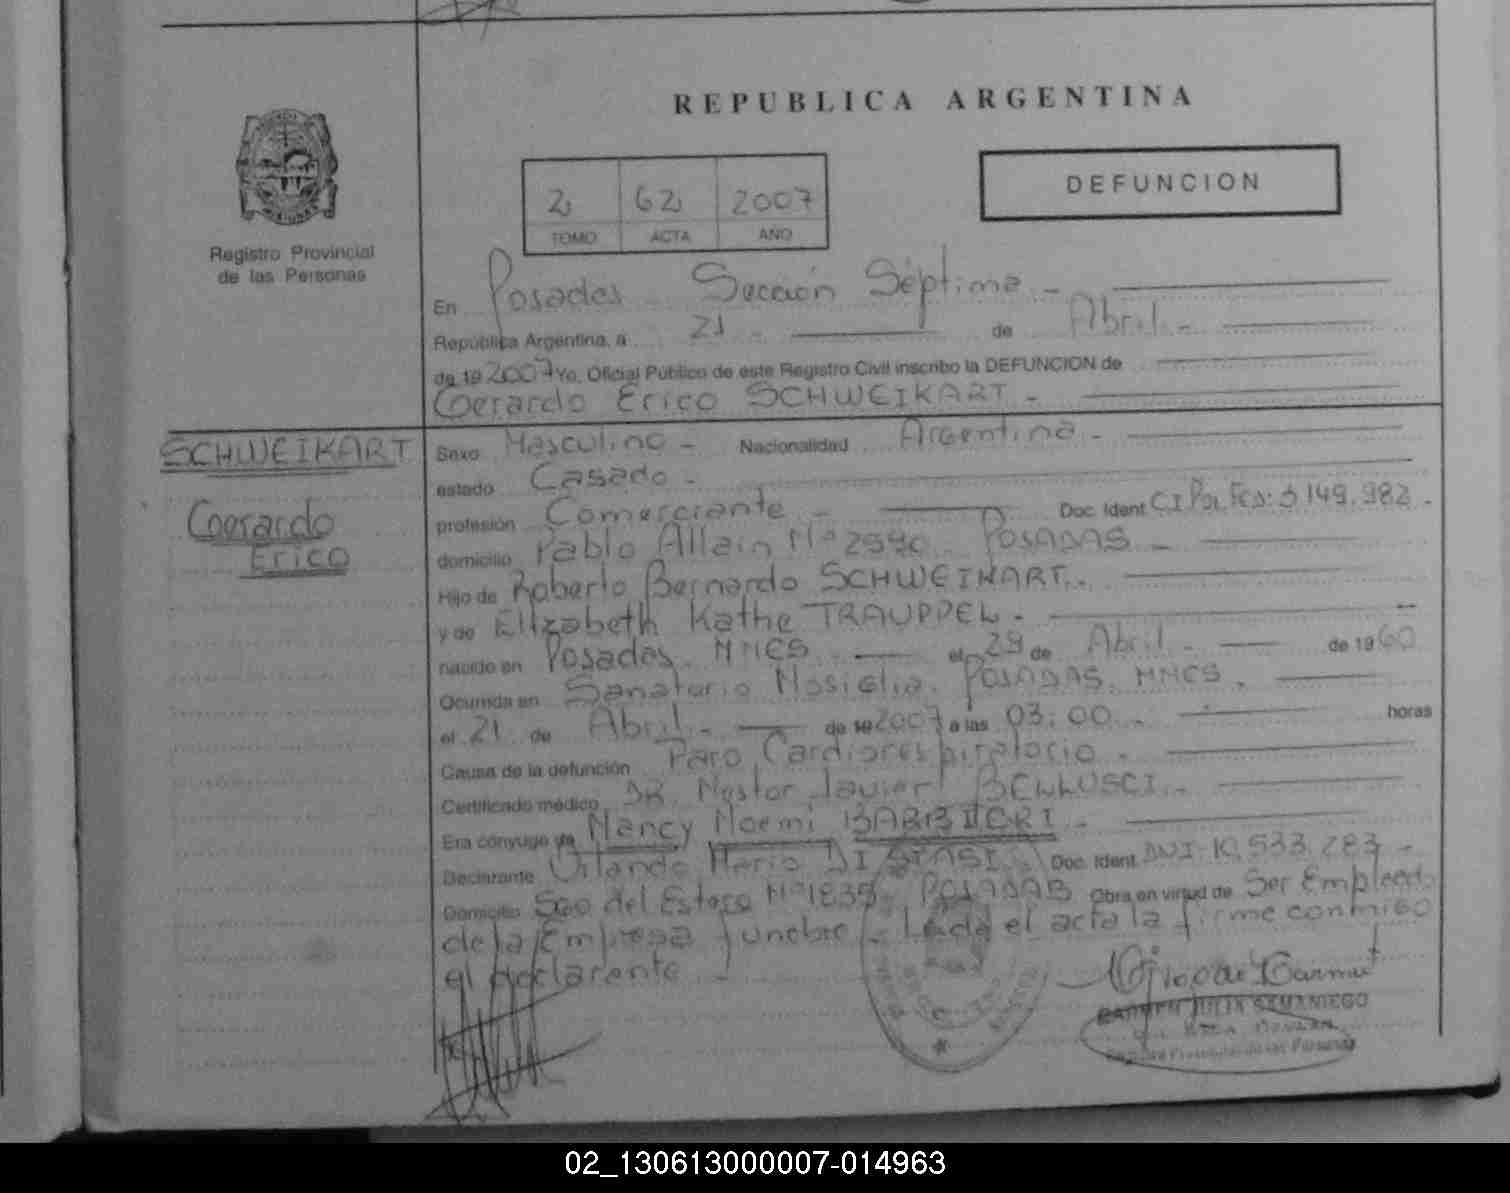 REPUBLICA ARGENTINA
Registro Provincial
de las Personas
2 62 2007
TOMO ACTA AÑO
DEFUNCION
En Posadas Sección Séptima -
República Argentina, a 21 - de Abril -
de 19 2007 Yo, Oficial Público de este Registro Civil inscribo la DEFUNCION de
Gerardo Erico SCHWEIKART -
SCHWEIKART
Gerardo
Erico
Sexo Masculino - Nacionalidad Argentina -
estado Casado -
profesión Comerciante - Doc. Ident C.I. Pol. Fed: 149.982 -
domicilio Pablo Allain Nº 2590 POSADAS -
Hijo de Roberto Bernardo SCHWEIKART -
y de Elizabeth Kathe TRAUPPEL -
nacido en Posadas, MNES el 29 de Abril - de 1960
Ocurrida en Sanatorio Nosiglia, POSADAS, MNES.
el 21 de Abril - de 19 2007 a las 03:00 - horas
Causa de la defunción Paro Cardiorespiratorio -
Certificado médico DR. Nestor Javier BELLUSCI -
Era cónyuge de Nancy Noemi BARBIERI -
Declarante Orlando Mario DI STASI Doc. Ident. DNI. 10.533.283 -
Domicilio Sgo del Estero Nº 1839 POSADAS Obra en virtud de Ser Empleado
de la Empresa funebre - Leida el acta la firme conmigo
el declarante -
CARMEN JULIA SAMANIEGO
Registro Provincial de las Personas
02_130613000007-014963